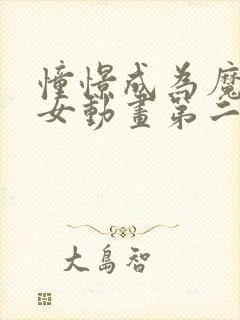 憧憬成為魔
女動畫第二
大島智